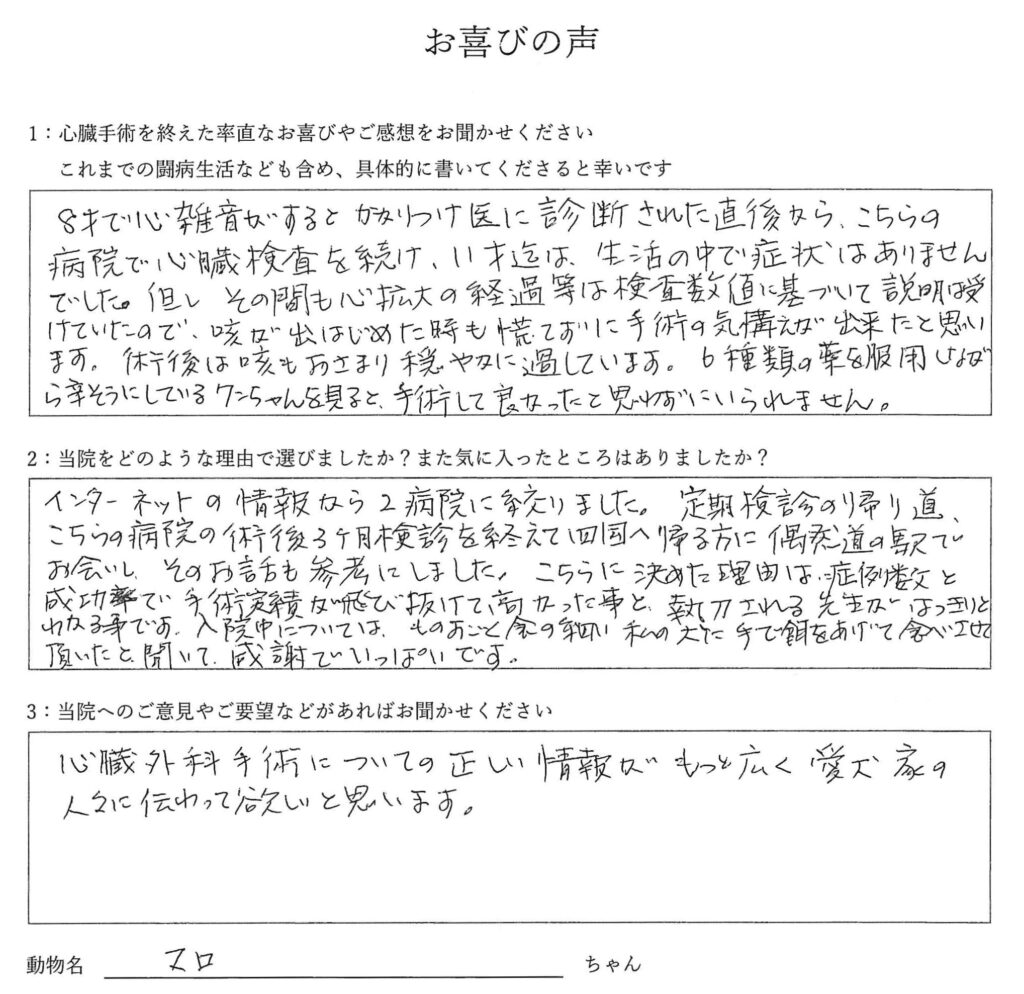 お喜びの声
1:心臓手術を終えた率直なお喜びやご感想をお聞かせください
これまでの闘病生活なども含め、具体的に書いてくださると幸いです
8才で心雑音がするとかかりつけ医に診断された直後から、こちらの
病院で心臓検査を続け、11才迄は、生活の中で症状はありません
でした。但し その間も心拡大の経過等は検査数値に基づいて説明は受
けていたので、咳が出はじめた時も慌てずに手術の気構えが出来たと思い
ます。術後は咳もおさまり穏やかに過しています。6種類の薬を服用しなが
ら辛そうにしているワンちゃんを見ると、手術して良かったと思わずにいられません。
2:当院をどのような理由で選びましたか?また気に入ったところはありましたか?
インターネットの情報から2病院に絞りました。定期検診の帰り道、
こちらの病院の術後3ヶ月検診を終えて四国へ帰る方に偶然道の駅で
お会いし、そのお話も参考にしました。こちらに決めた理由は、症例数と
成功率で手術実績が飛び抜けて高かった事と、執刀される先生がはっきりと
わかる事です。入院中については、ものすごく食の細い私の犬に手で餌をあげて食べさせて
頂いたと聞いて、感謝でいっぱいです。
3:当院へのご意見やご要望などがあればお聞かせください
心臓外科手術についての正しい情報が もっと広く愛犬家の
人々に伝わって欲しいと思います。
動物名 マロ ちゃん